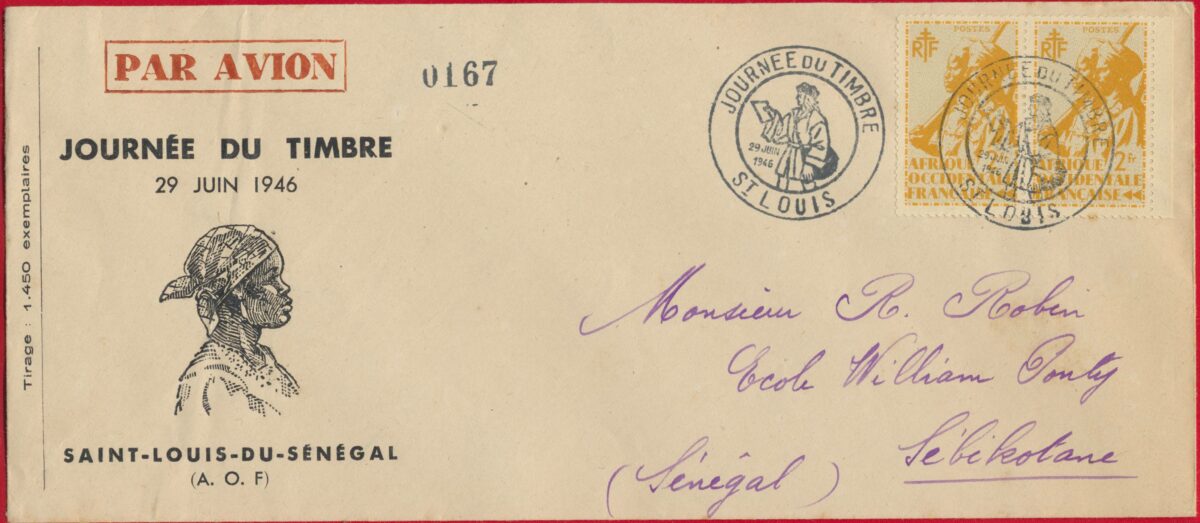 Tirage : 1.450 exemplaires
PAR AVION
0167
JOURNÉE DU TIMBRE
29 JUIN 1946
SAINT-LOUIS-DU-SÉNÉGAL
(A. O. F)
JOURNEE DU TIMBRE
29 JUIN
1946
ST LOUIS
RF
POSTES
AFRIQUE
OCCIDENTALE
FRANÇAISE
RF
POSTES
2 Fr
AFRIQUE
OCCIDENTALE
FRANÇAISE
JOURNEE DU TIMBRE
29 JUIN
1946
ST LOUIS
Monsieur R. Robin
Ecole William Ponty
Sébikotane
(Sénégal)